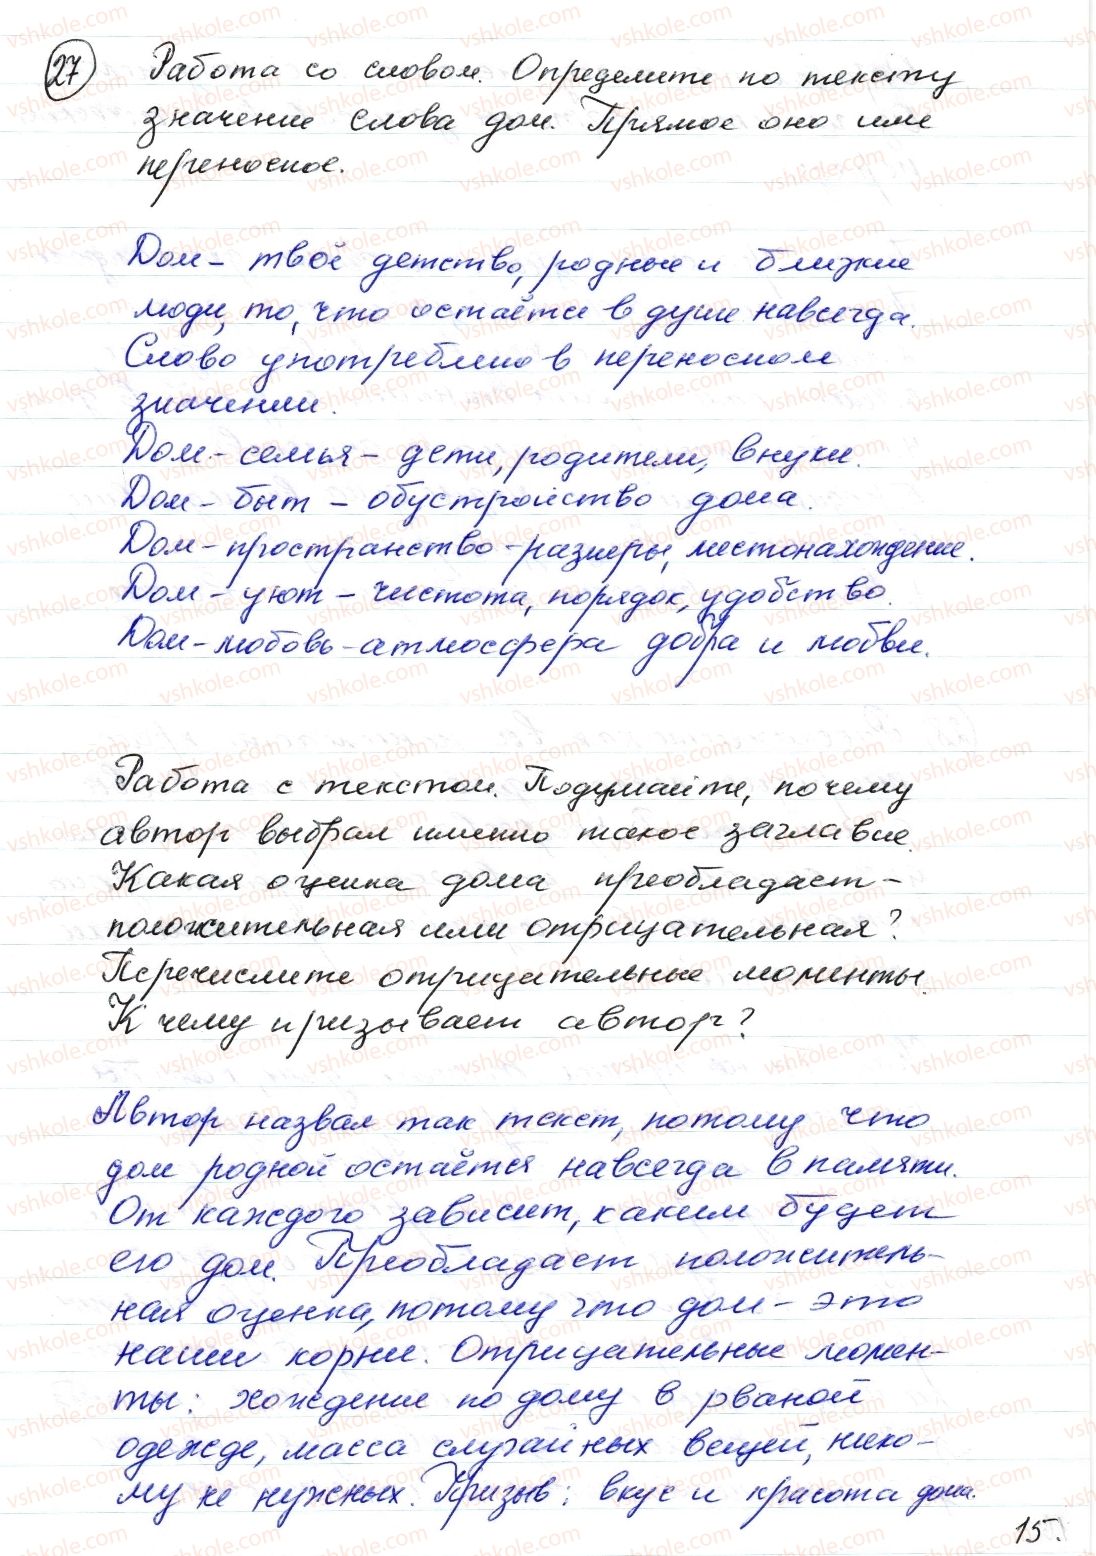 27 Работа со словом. Определите по тексту
значение слова дом. Прямое оно или
переносное.
Дом - твоё детство, родные и близкие
люди, то, что остаётся в душе навсегда.
Слово употреблено в переносном
значении.
Дом - семья - дети, родители, внуки.
Дом - быт - обустройство дома.
Дом - пространство - размеры, местонахождение.
Дом - уют - чистота, порядок, удобство.
Дом - любовь - атмосфера добра и любви.
Работа с текстом. Подумайте, почему
автор выбрал именно такое заглавие.
Какая оценка дома преобладает -
положительная или отрицательная?
Перечислите отрицательные моменты.
К чему призывает автор?
Автор назвал так текст, потому что
дом родной остаётся навсегда в памяти.
От каждого зависит, каким будет
его дом. Преобладает положитель-
ная оценка, потому что дом - это
наши корни. Отрицательные момен-
ты: хождение по дому в рваной
одежде, масса случайных вещей, нико-
му не нужных. Призыв: вкус и красота дома.
15.